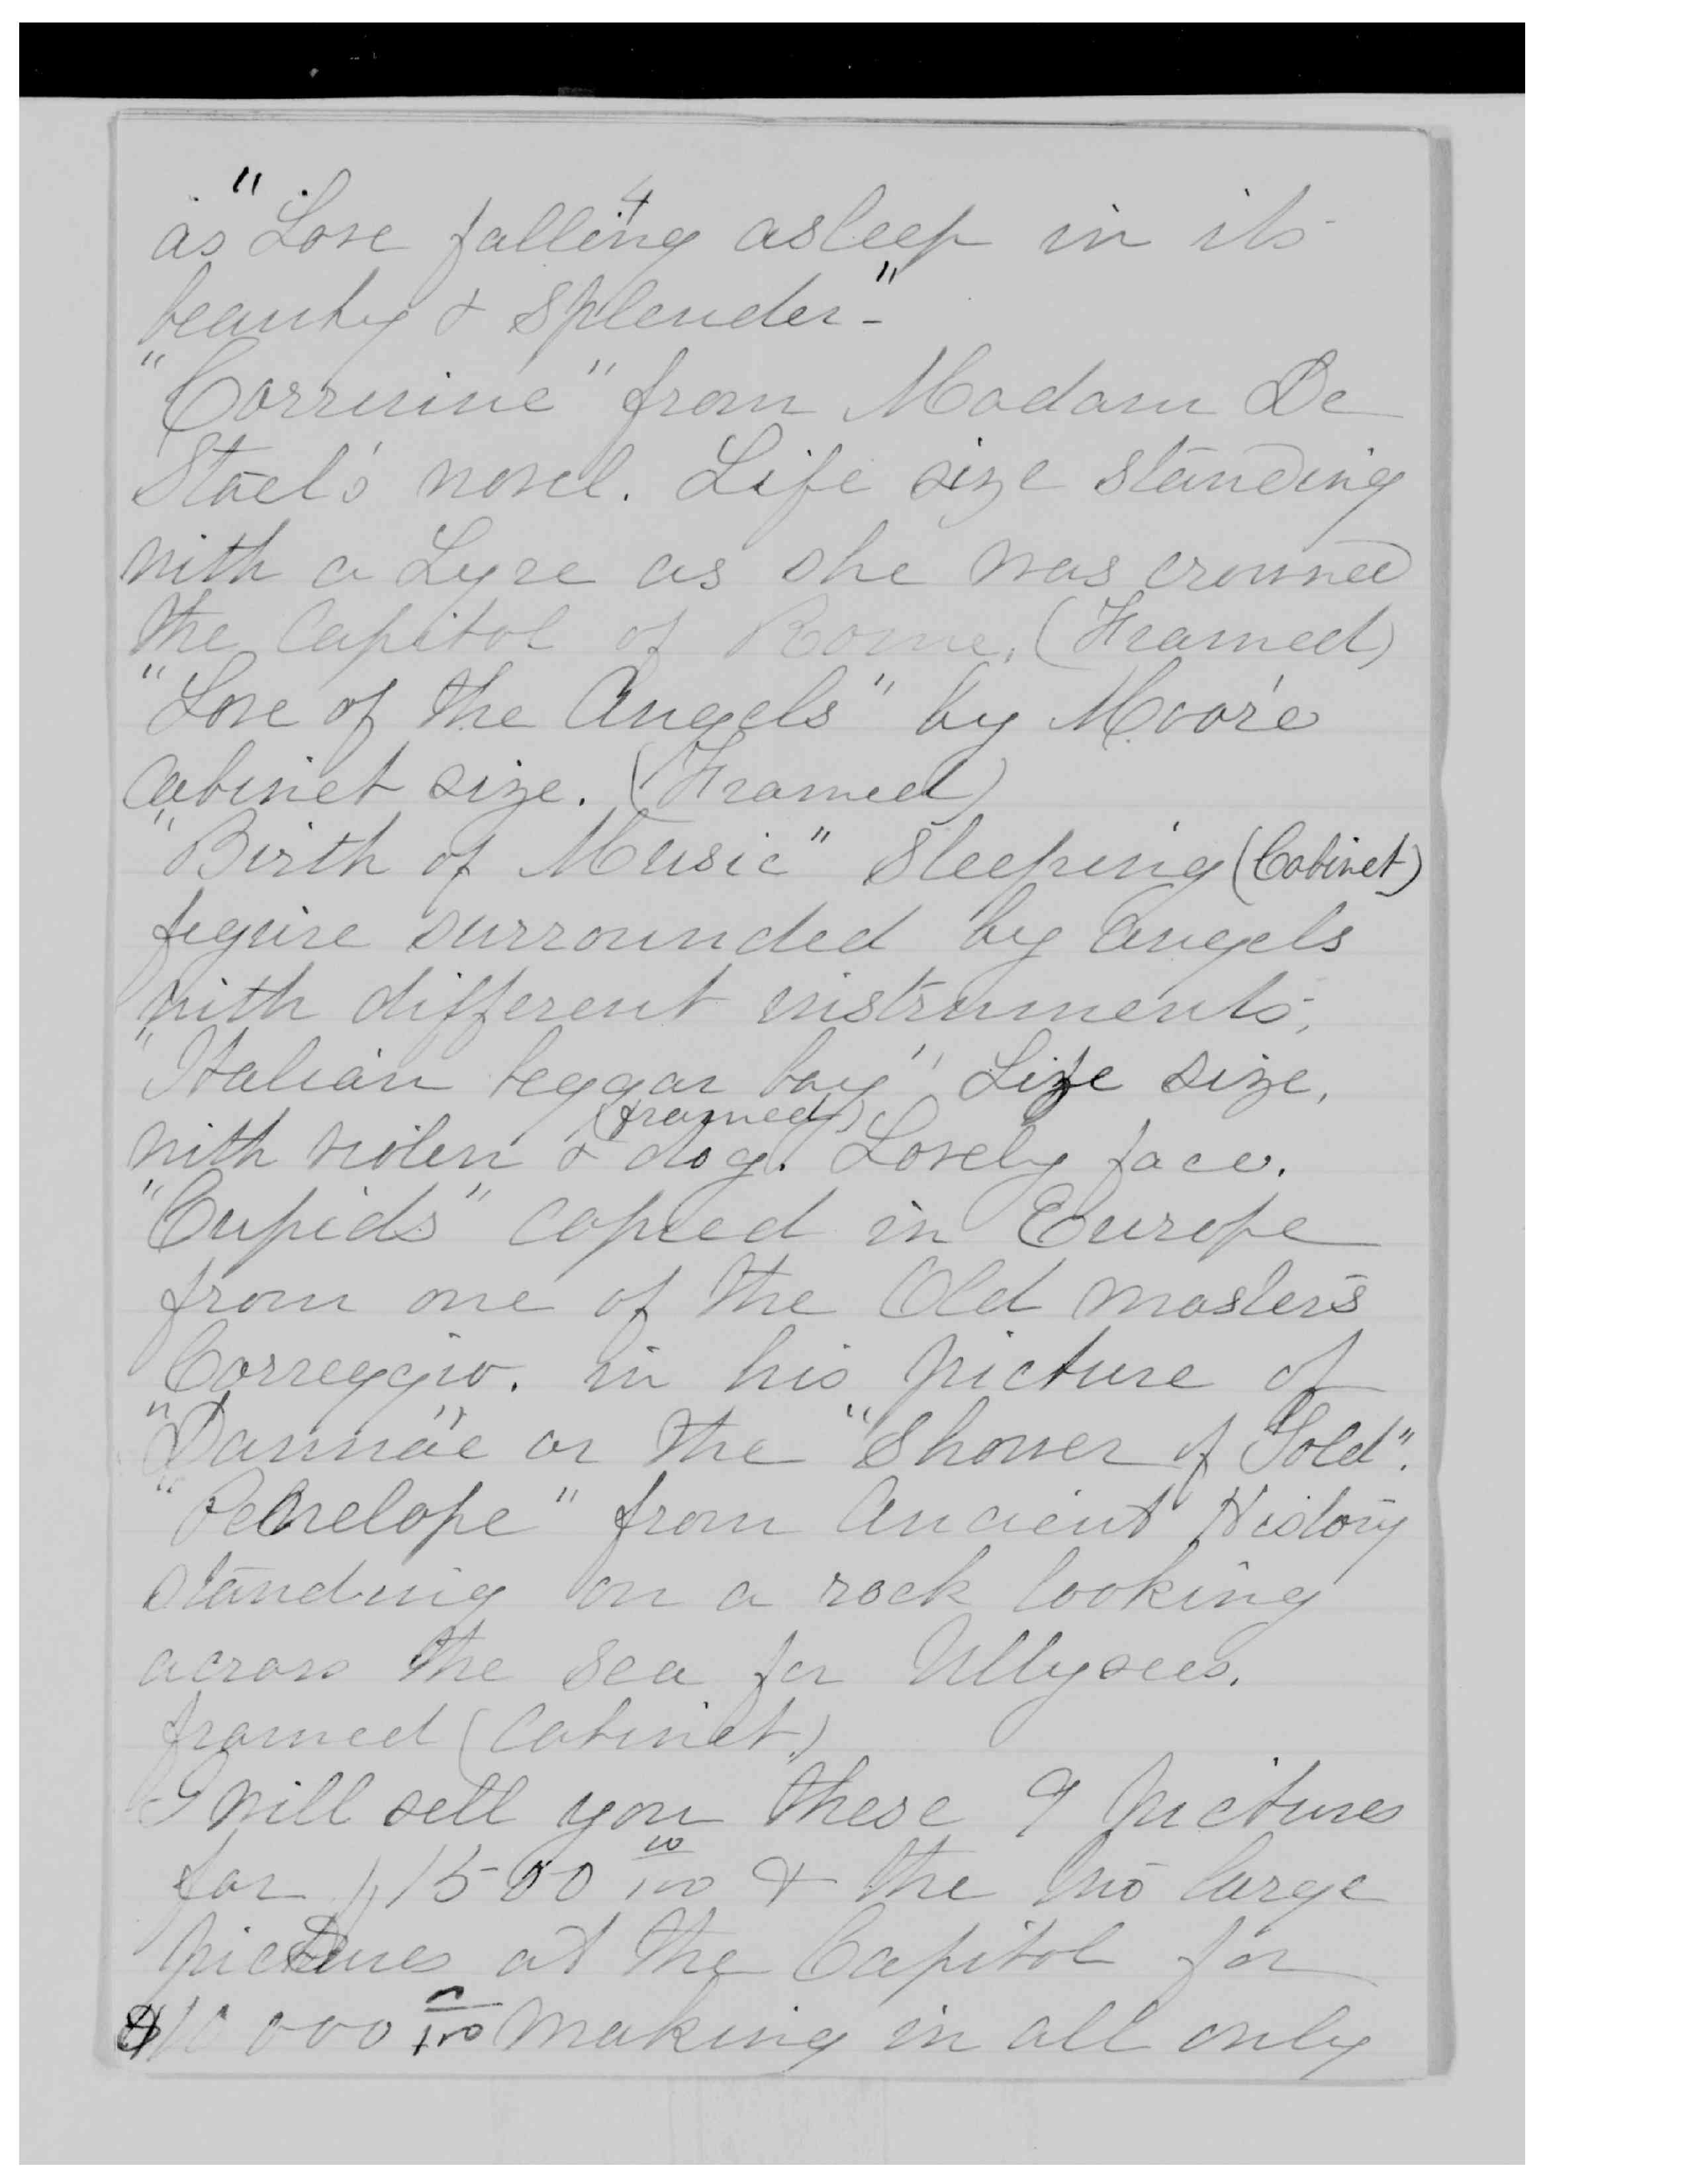 4
as "Love falling asleep in its
beauty & splender"-
"Corrinine" from Madam De
Stael's novel. Life size standing
with a Lyre as she was crowned
the Capitol of Rome. (Framed)
"Love of the Angels" by Moore
Cabinet size. (Framed)
"Birth of Music" Sleeping (Cabinet)
figure surrounded by Angels
with different instruments.
"Italian beggar boy" Life size,
(framed)
with violin & dog. Lovely face.
"Cupids" copied in Europe
from one of the Old masters
Correggio. in his picture of
"Dannäe" or the "Shower of Gold".
"Penelope" from Ancient History
standing on a rock looking
across the sea for Ullysees.
framed (Cabinet)
I will sell you these 9 pictures
for $1500 00/100 & the two large
pictures at the Capitol for
$10000 00/100 making in all only